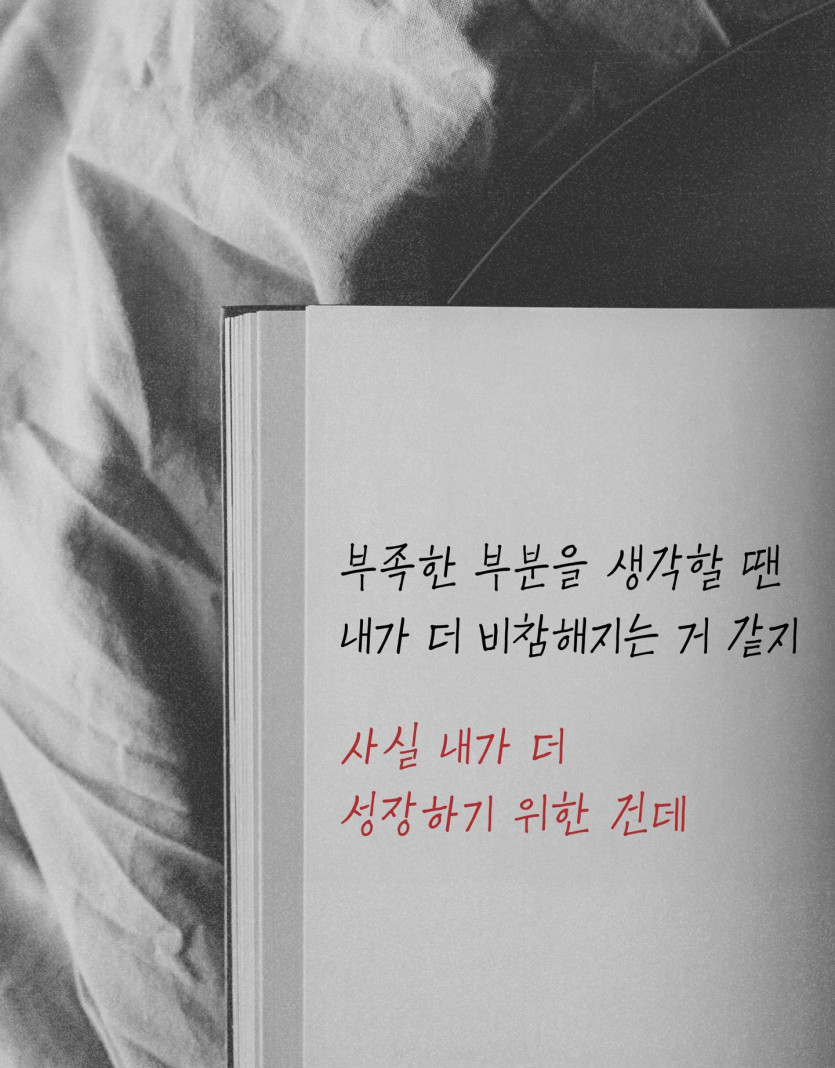 부족한 부분을 생각할 땐
내가 더 비참해지는 거 같지
사실 내가 더
성장하기 위한 건데